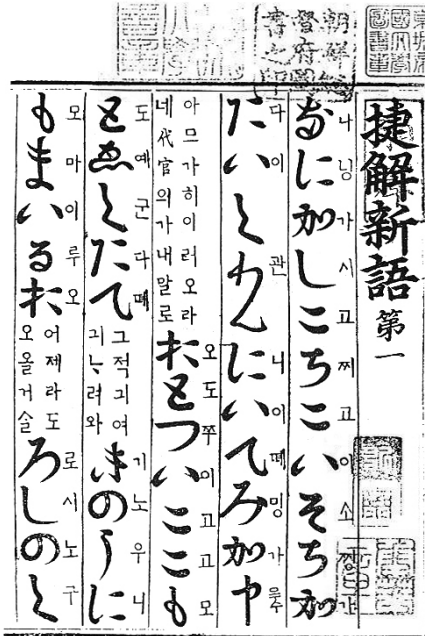 朝鮮總督府圖書之印
捷解新語 第一
なにかしこちこいそちか
나닝가시고찌고이소찌가
たいくわんにいてみか申
다이관니이뗴밍가
아므가히이러오라
네代官의가내말로
おとついここも
오도쭈이고고모
とゑくたて
도예군다뗴
그적긔여
긔ᄂᆞ려와
きのうに
기노우니
もまいるお
모마이루오
어제라도
오올거슬
ろしのく
로시노구